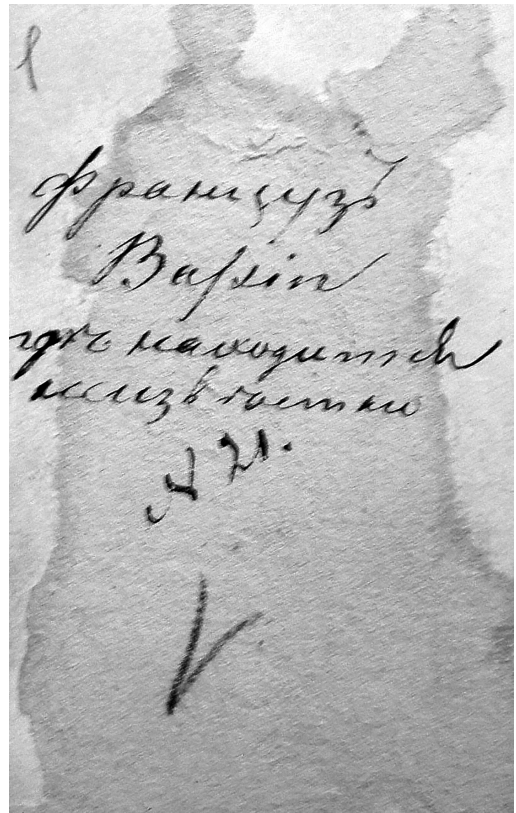 Французъ
Bassin
гдѣ находится
неизвѣстно
N 21.